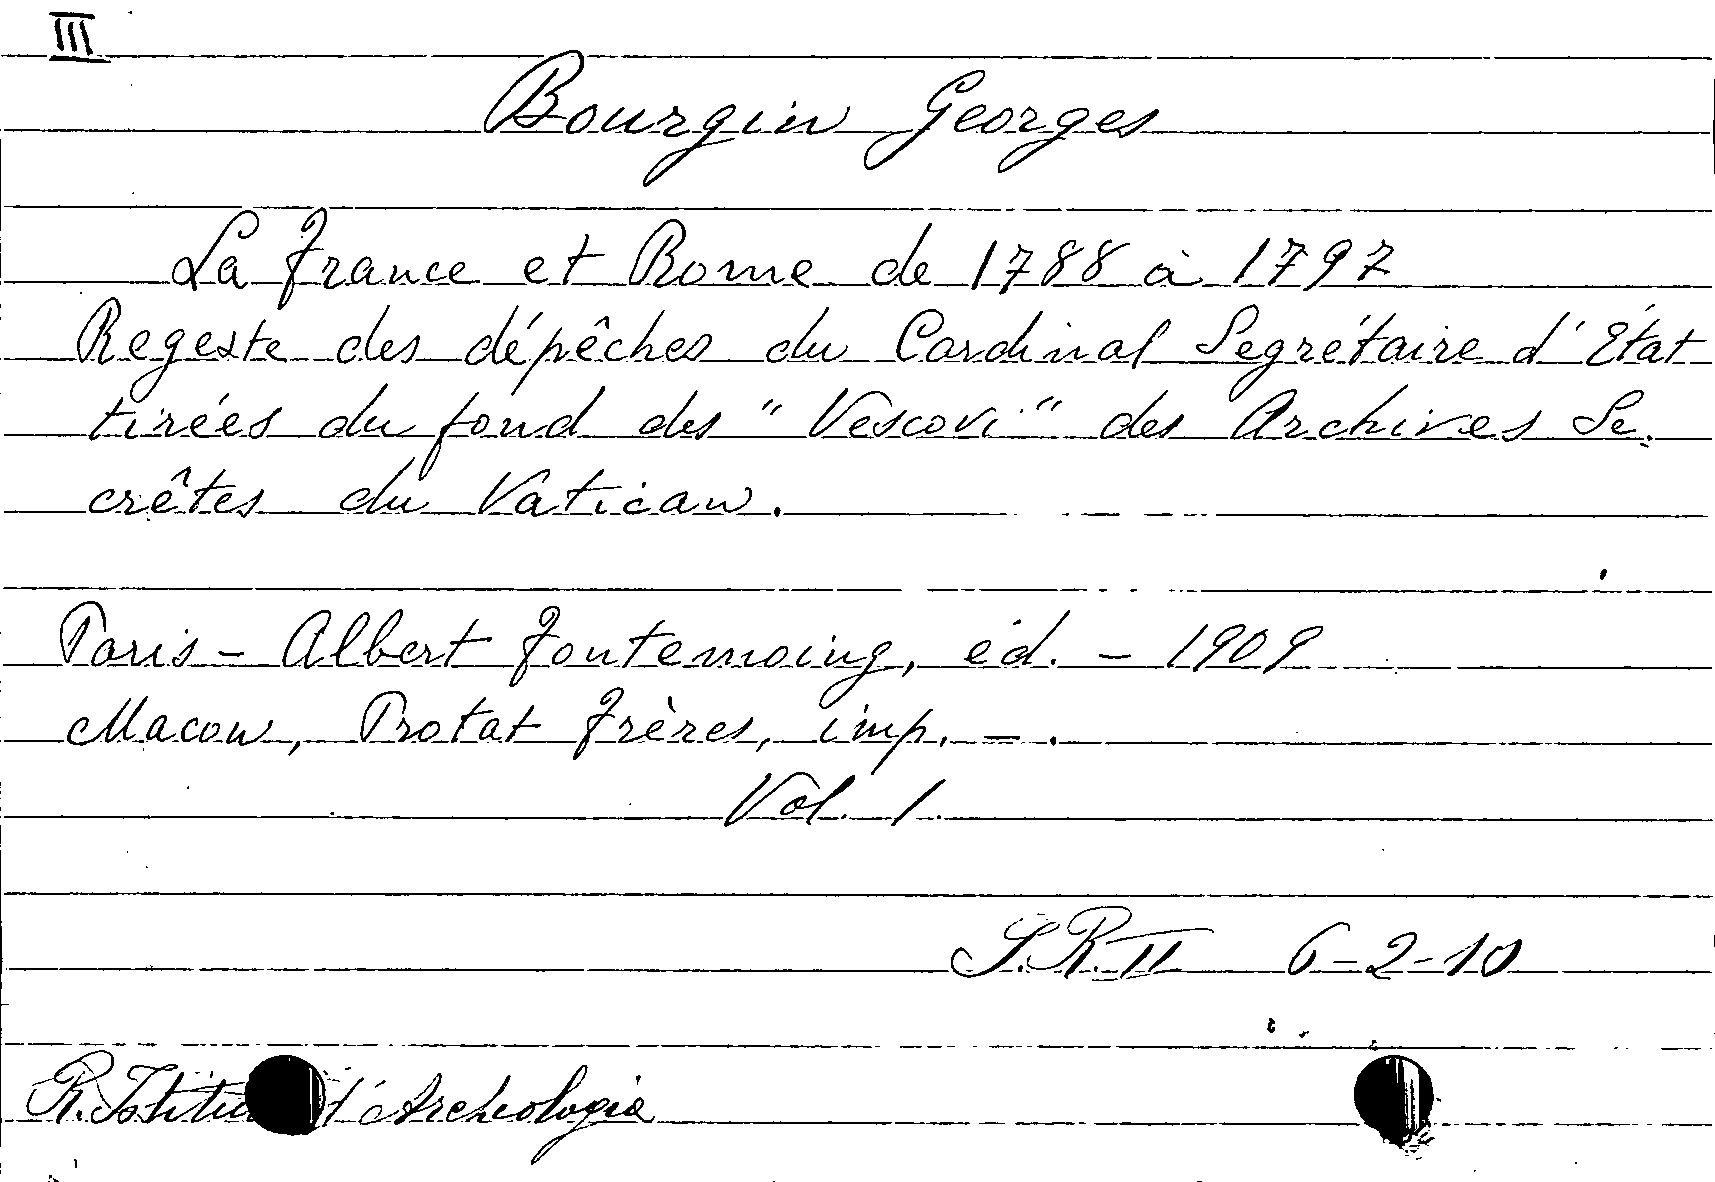 III
Bourgin Georges
La France et Rome de 1788 à 1797
Regeste des dépêches du Cardinal Segrétaire d'État
tirées du fond des "Vescovi" des Archives Se-
crêtes du Vatican.
Paris - Albert Fontemoing, éd. - 1909
Macon, Protat Frères, imp. - .
Vol. 1.
S.R. II 6-2-10
R. Istitu d'Archeologia